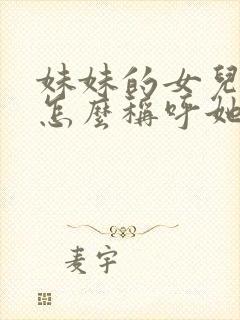 妹妹的女兒
怎麼稱呼她
麦宇